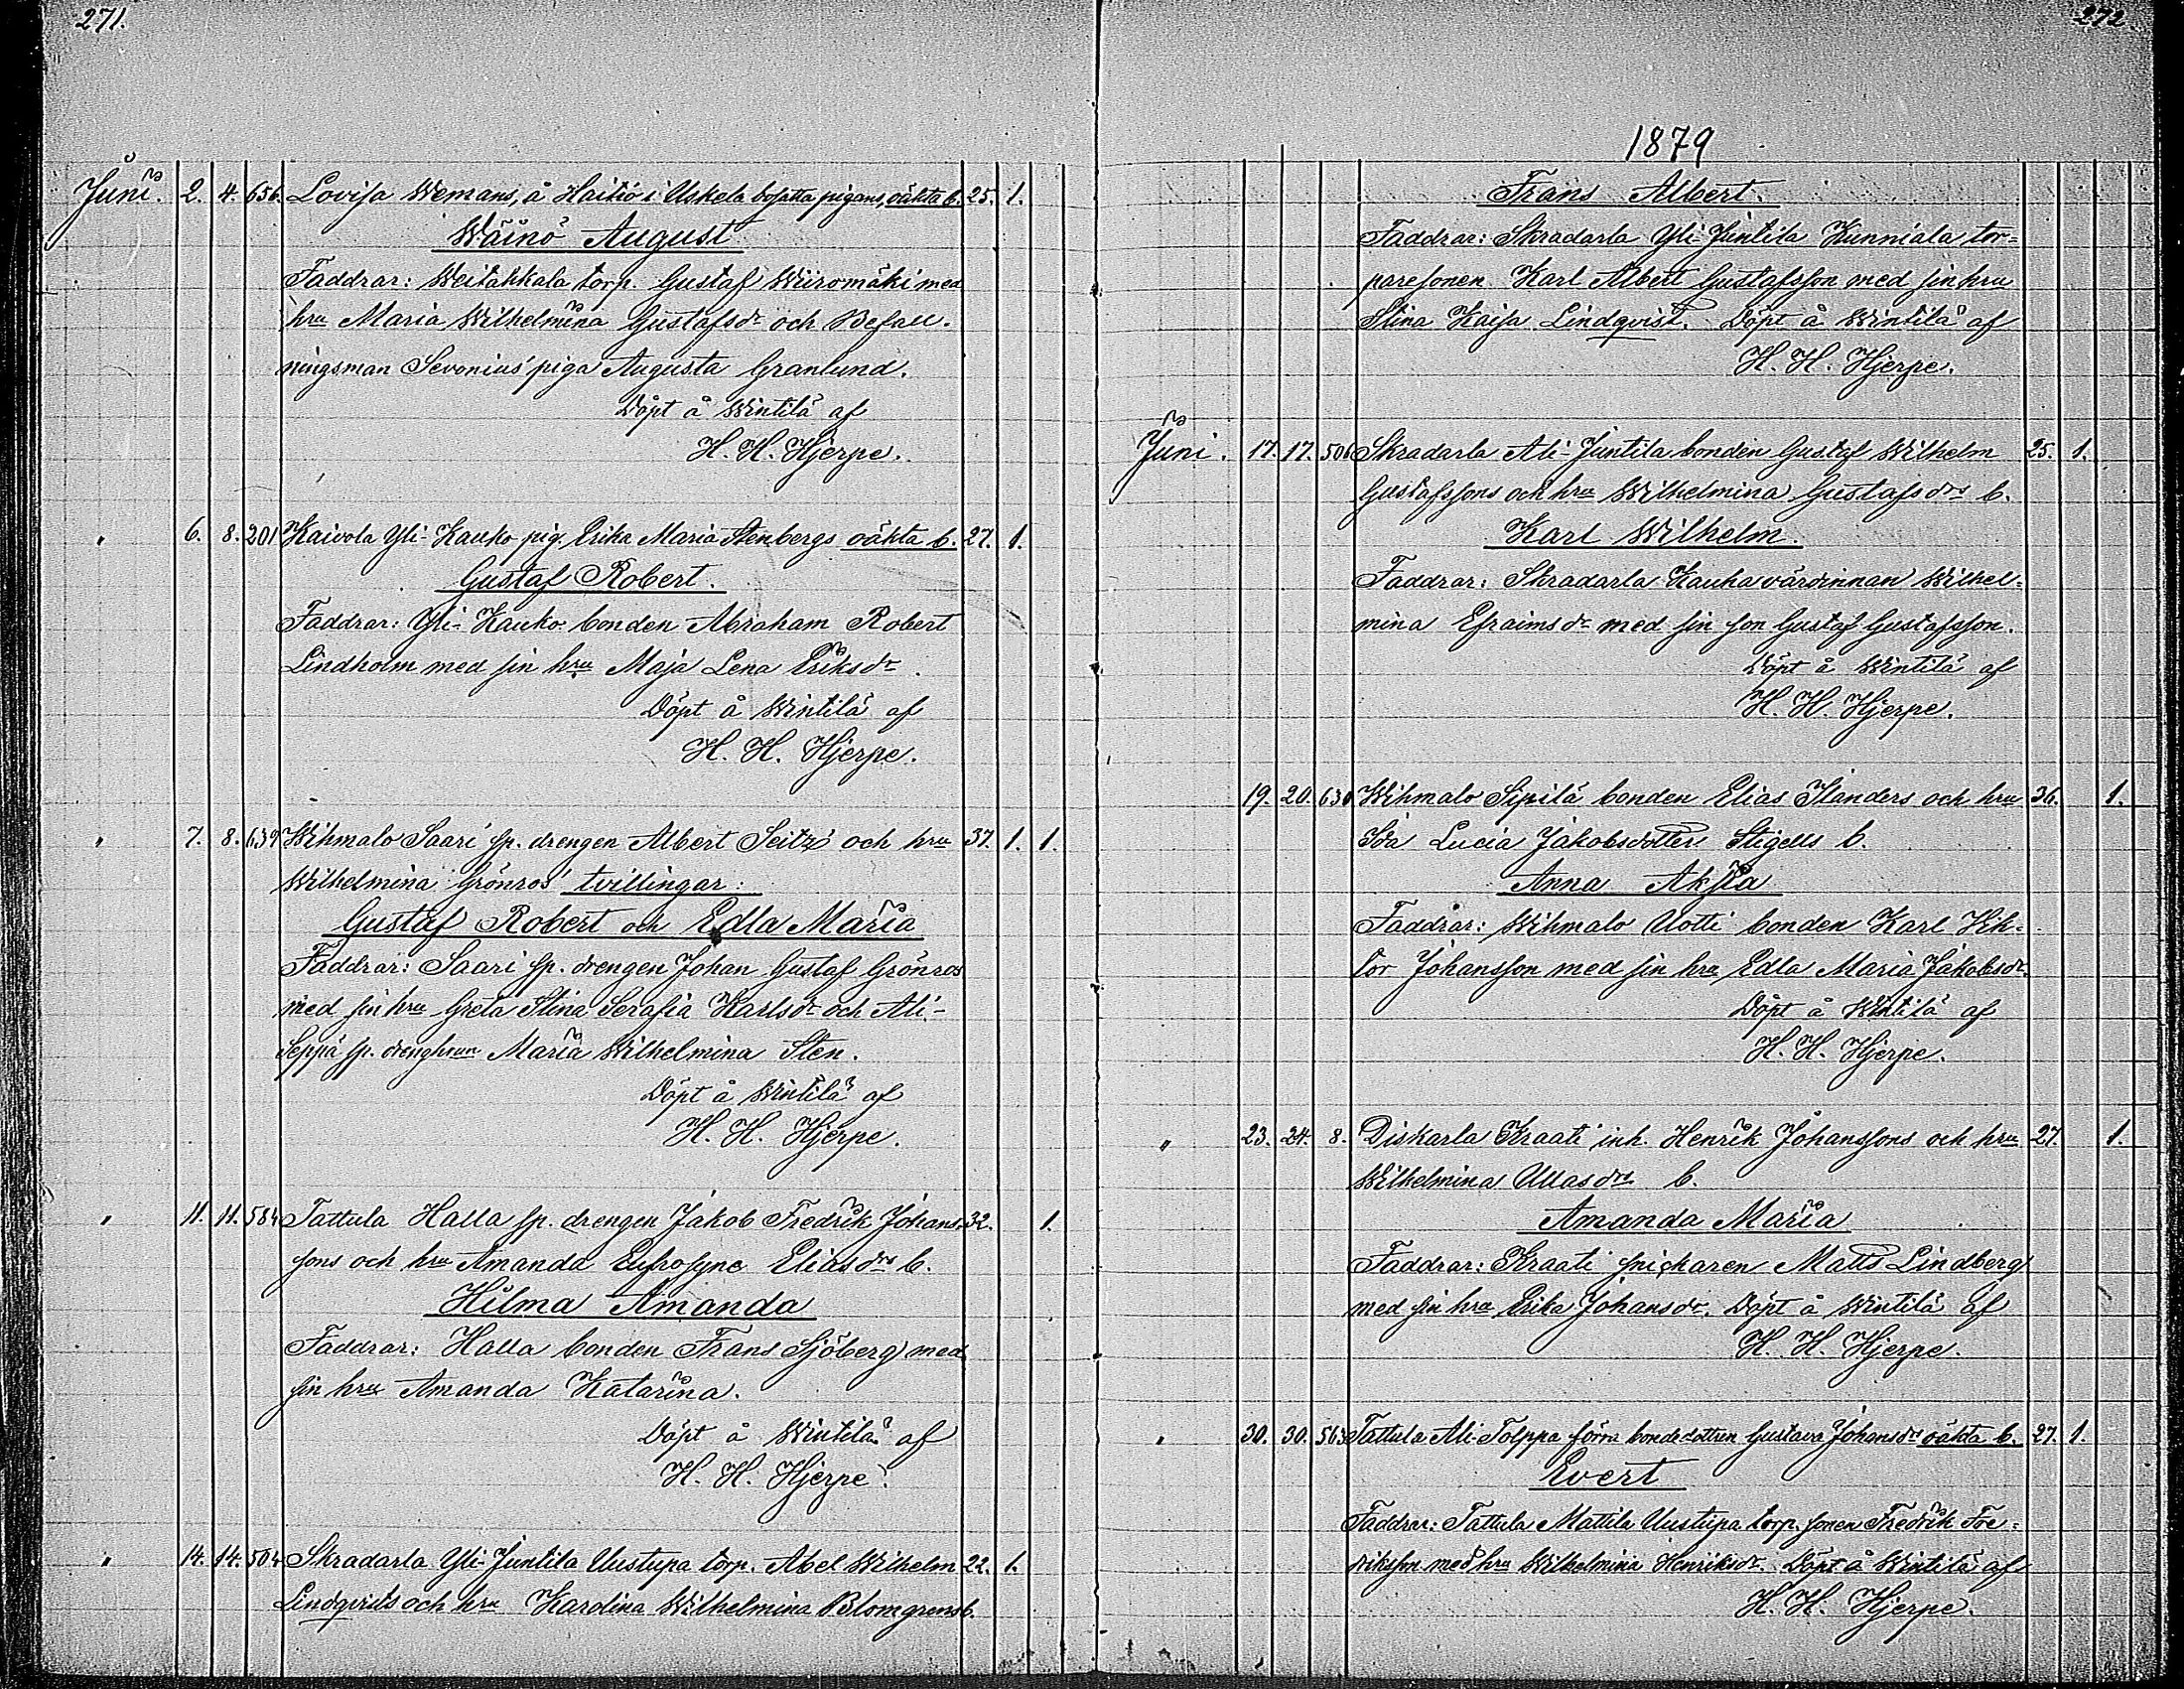 271.
Juni. 2. 4. 656. Lovisa Wemans, å Haitiö i Uskela bosatta pigans, oäkta b. 25. 1.
Wäinö August
Faddrar: Weitakkala torp. Gustaf Wiiromäki med
hru Maria Wilhelmina Gustafsdr och Befall-
ningsman Sevonius' piga Augusta Granlund.
Döpt å Wintilä af
H. H. Hjerpe.
" 6. 8. 201 Kaivola Yli-Kauko pig. Erika Maria Stenbergs oäkta b. 27. 1.
Gustaf Robert.
Faddrar: Yli-Kauko bonden Abraham Robert
Lindholm med sin hru Maja Lena Eriksdr.
Döpt å Wintilä af
H. H. Hjerpe.
" 7. 8. 639 Wihmalo Saari sp. drengen Albert Seitz' och hru 37. 1. 1.
Wilhelmina Grönros' tvillingar:
Gustaf Robert och Edla Maria
Faddrar: Saari sp. drengen Johan Gustaf Grönros
med sin hru Greta Stina Serafia Karlsdr och Ali-
Seppä sp. drenghrun Maria Wilhelmina Sten.
Döpt å Wintilä af
H. H. Hjerpe.
" 11. 11. 584 Tattula Halla sp. drengen Jakob Fredrik Johans- 32. 1.
sons och hru Amanda Eufrosyne Eliasdrs b.
Hilma Amanda
Faddrar: Halla bonden Frans Sjöberg med
sin hru Amanda Katarina.
Döpt å Wintilä af
H. H. Hjerpe.
" 14. 14. 504 Skradarla Yli-Juntila Uustupa torp. Abel Wilhelm 22. 1.
Lindqvists och hru Karolina Wilhelmina Blomgrens b.
272
1879
Frans Albert.
Faddrar: Skradarla Yli-Juntila Kunniala tor-
paresonen Karl Albert Gustafsson med sin hru
Stina Kaisa Lindqvist. Döpt å Wintilä af
H. H. Hjerpe.
Juni. 17. 17. 506 Skradarla Ali-Juntila bonden Gustaf Wilhelm 25. 1.
Gustafssons och hru Wilhelmina Gustafsdrs b.
Karl Wilhelm.
Faddrar: Skradarla Kauha värdinnan Wilhel-
mina Efraimsdr med sin son Gustaf Gustafsson.
Döpt å Wintilä af
H. H. Hjerpe.
19. 20. 630 Wihmalo Sipilä bonden Elias Slanders och hru 36. 1.
Ida Lucia Jakobsdotter Stigells b.
Anna Aksia
Faddrar: Wihmalo Uotti bonden Karl Vik-
tor Johansson med sin hru Edla Maria Jakobsdr.
Döpt å Wintilä af
H. H. Hjerpe.
" 23. 24. 8. Diskarla Kraati inh. Henrik Johanssons och hru 27. 1.
Wilhelmina Ullasdrs b.
Amanda Maria
Faddrar: Kraati snickaren Matts Lindberg
med sin hru Erika Johansdr. Döpt å Wintilä af
H. H. Hjerpe.
" 30. 30. 563 Tattula Ali-Tolppa förra bondedottren Gustava Johansdrs oäkta b. 27. 1.
Evert
Faddrar: Tattula Mattila Uustupa torp. sonen Fredrik Fre-
driksson med hru Wilhelmina Henriksdr. Döpt å Wintilä af
H. H. Hjerpe.